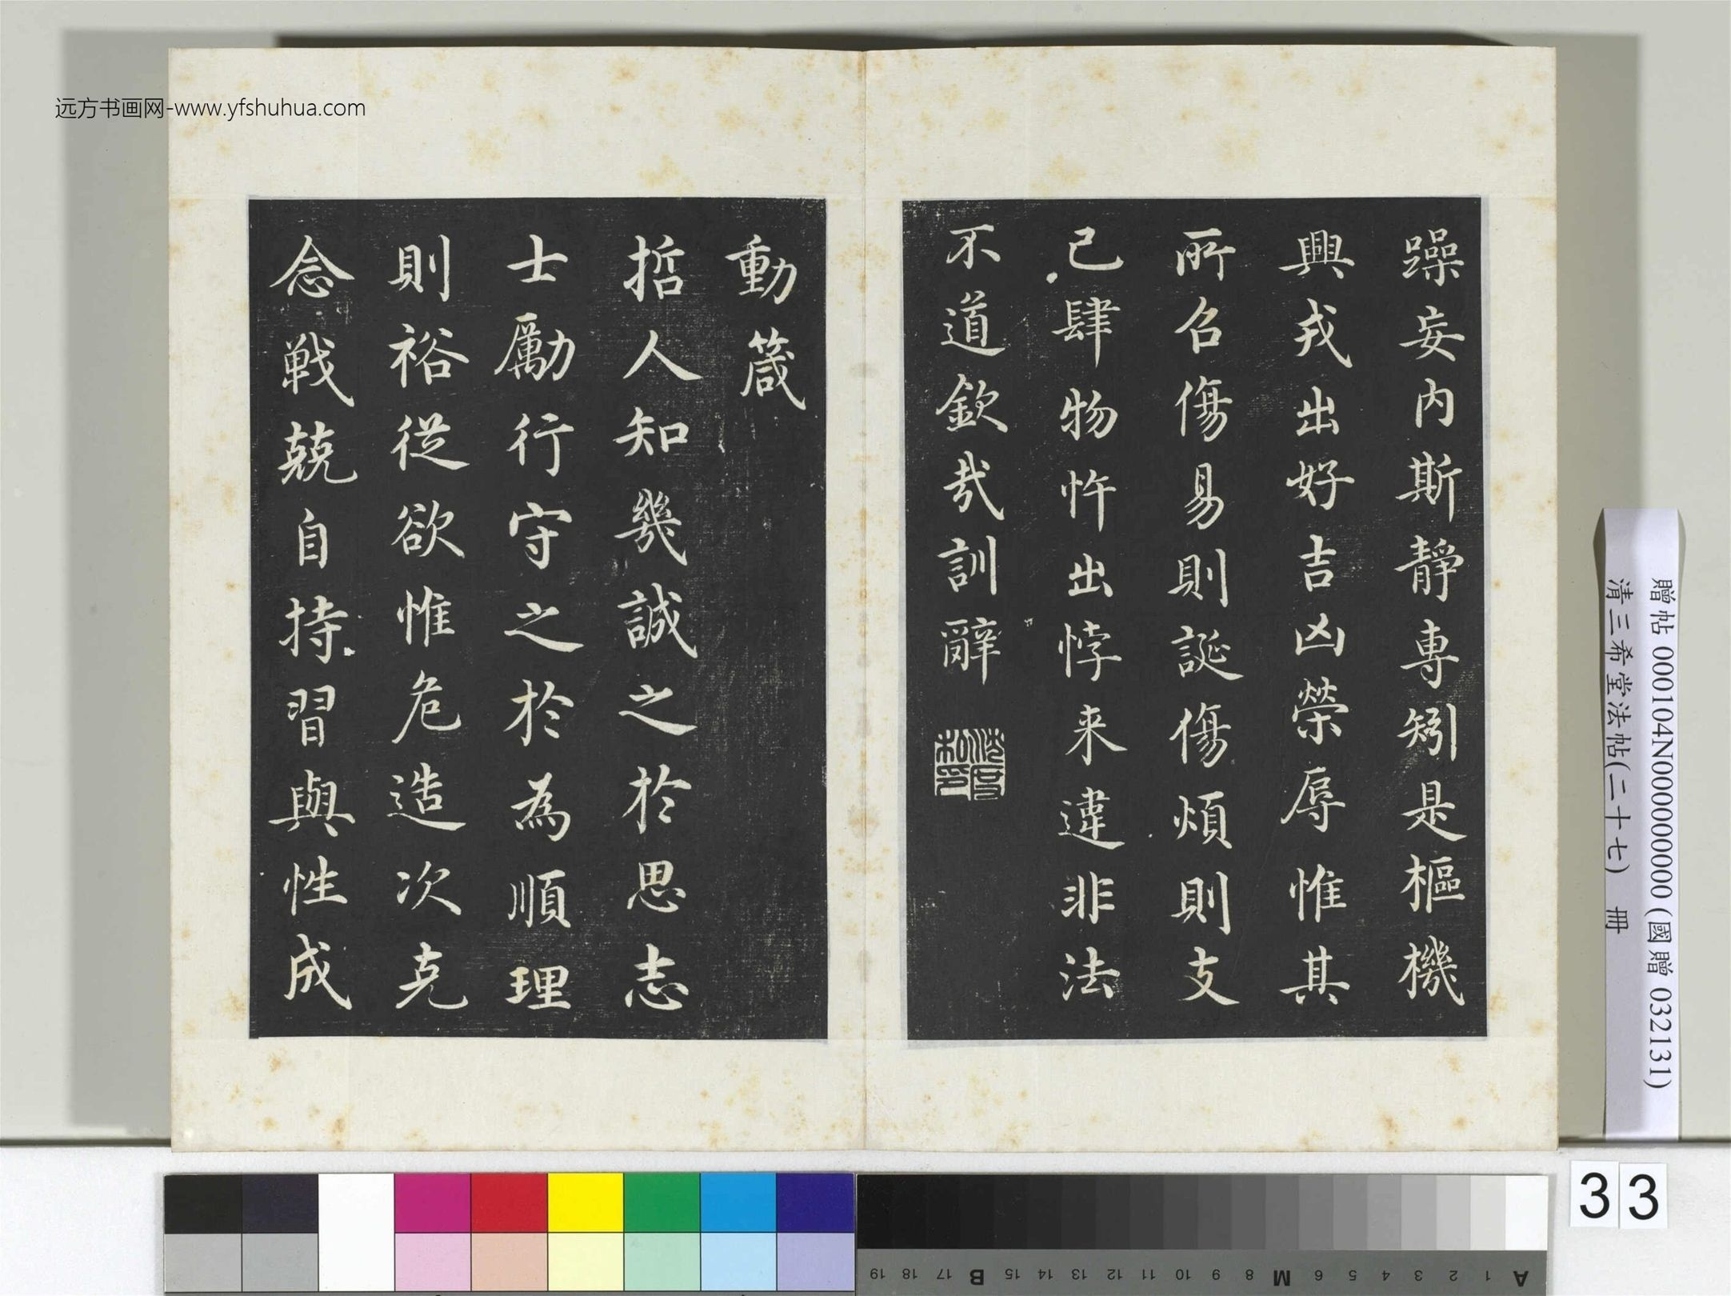 远方书画网-www.yfshuhua.com
躁妄内斯靜專矧是樞機
興戎出好吉凶榮辱惟其
所召傷易則誕傷煩則支
己肆物忤出悖来違非法
不道欽哉訓辭
動箴
哲人知幾誠之於思志
士勵行守之於為順理
則裕從欲惟危造次克
念戰兢自持習與性成
贈帖 000104N000000000 (國贈 032131)
清三希堂法帖(二十七) 冊
33
19 18 17 B 15 14 13 12 11 10 9 8 M 6 5 4 3 2 1 A